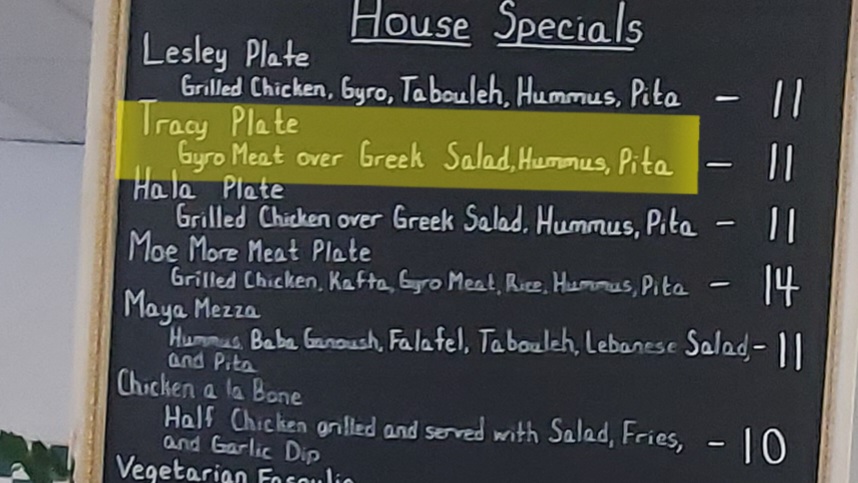 House Specials
Lesley Plate
Grilled Chicken, Gyro, Tabouleh, Hummus, Pita – 11
Tracy Plate
Gyro Meat over Greek Salad, Hummus, Pita – 11
Hala Plate
Grilled Chicken over Greek Salad, Hummus, Pita – 11
Moe More Meat Plate
Grilled Chicken, Kafta, Gyro Meat, Rice, Hummus, Pita – 14
Maya Mezza
Hummus, Baba Ganoush, Falafel, Tabouleh, Lebanese Salad – 11
and Pita
Chicken a la Bone
Half Chicken grilled and served with Salad, Fries, – 10
and Garlic Dip
Vegetarian